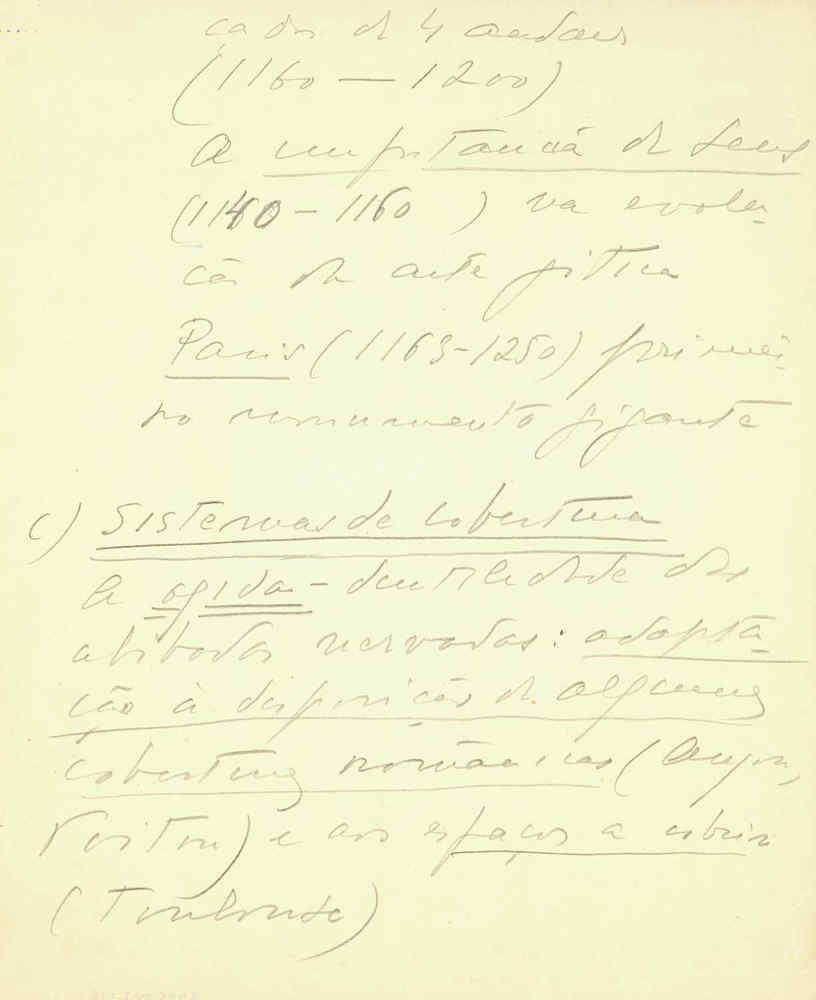 cados de 4 andares
(1160 — 1200)
A importancia de Sens
(1140 – 1160 ) na evolu-
ção da arte gótica
Paris (1163-1250) primei-
ro monumento gigante
c) Sistemas de cobertura
A agida- das
abóbadas nervadas: adapta-
ção à disposição de algumas
coberturas românicas (Angers,
Poitou) e aos espaços a cobrir
(Toulouse)